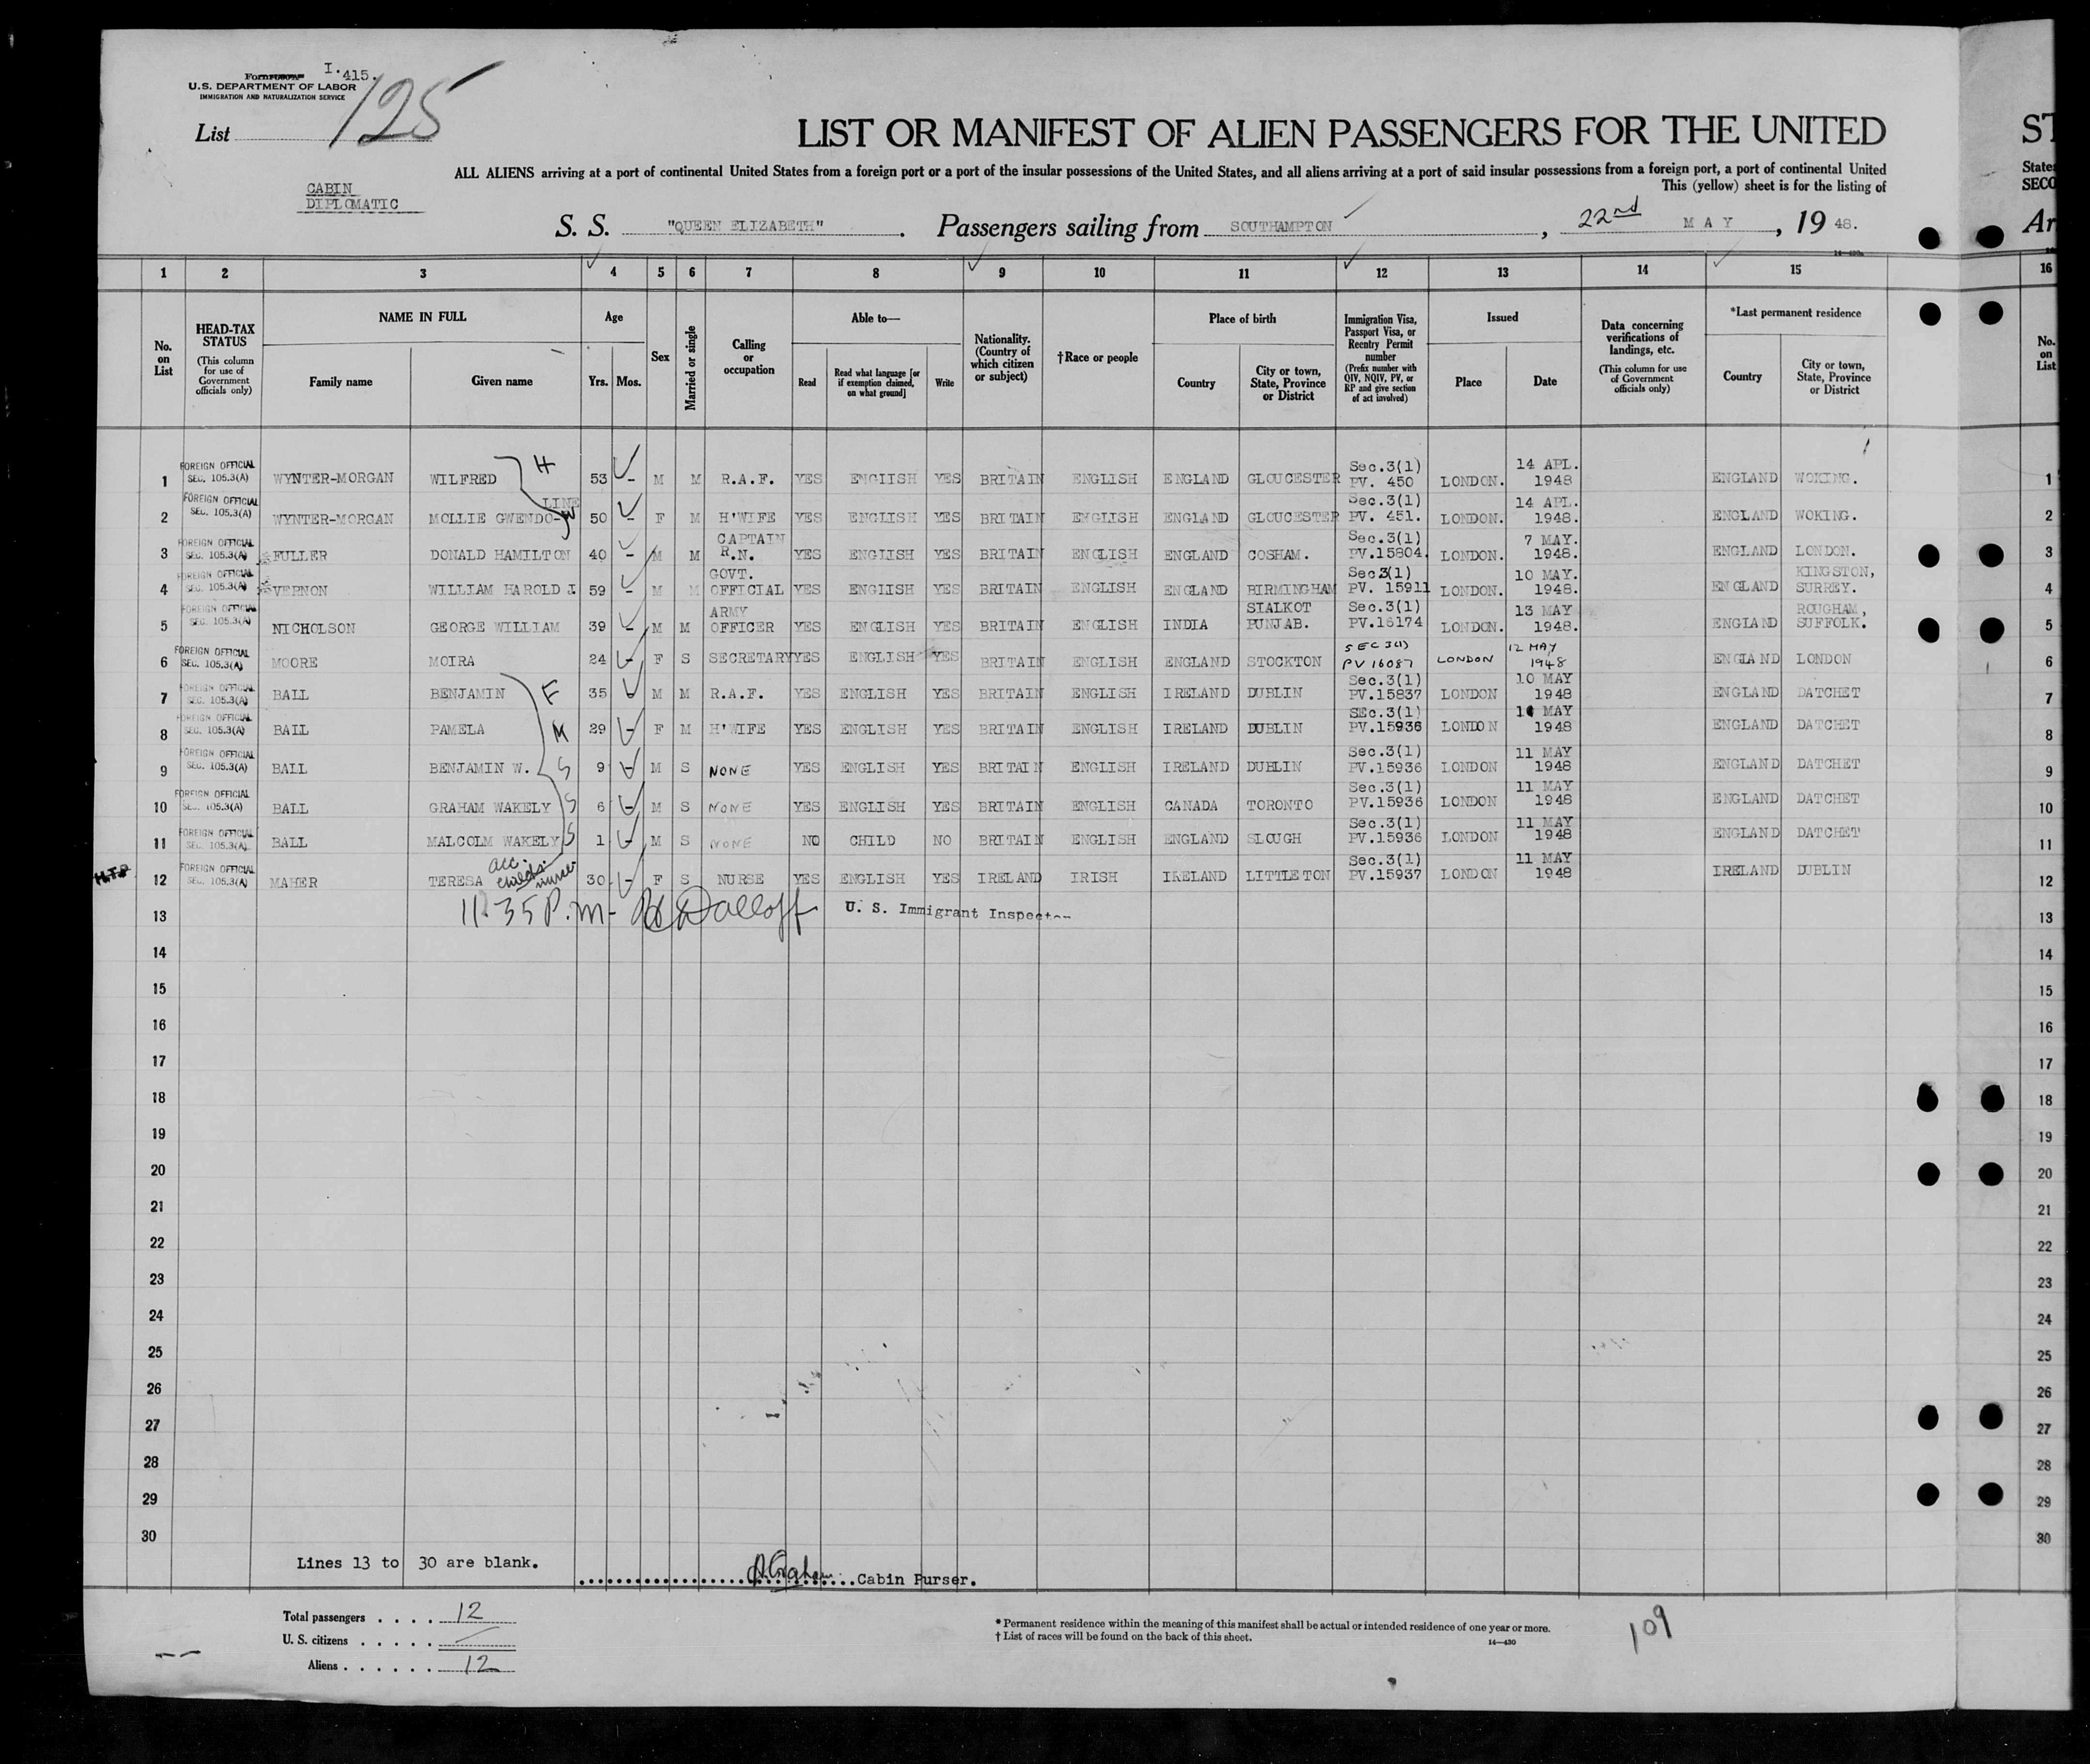 Form I. 415.
U.S. DEPARTMENT OF LABOR
IMMIGRATION AND NATURALIZATION SERVICE
List 125
LIST OR MANIFEST OF ALIEN PASSENGERS FOR THE UNITED ST
ALL ALIENS arriving at a port of continental United States from a foreign port or a port of the insular possessions of the United States, and all aliens arriving at a port of said insular possessions from a foreign port, a port of continental United States
This (yellow) sheet is for the listing of SECO
CABIN
DIPLOMATIC
S. S. "QUEEN ELIZABETH". Passengers sailing from SOUTHAMPTON, 22nd MAY, 19 48. Ar
1 2 3 4 5 6 7 8 9 10 11 12 13 14 15 16
No. on List
HEAD-TAX STATUS (This column for use of Government officials only)
NAME IN FULL
Family name Given name
Age
Yrs. Mos.
Sex
Married or single
Calling or occupation
Able to—
Read Read what language [or if exemption claimed, on what ground] Write
Nationality. (Country of which citizen or subject)
†Race or people
Place of birth
Country City or town, State, Province or District
Immigration Visa, Passport Visa, or Reentry Permit number (Prefix number with QIV, NQIV, PV, or RP and give section of act involved)
Issued
Place Date
Data concerning verifications of landings, etc. (This column for use of Government officials only)
*Last permanent residence
Country City or town, State, Province or District
No. on List
1 FOREIGN OFFICIAL SEC. 105.3(A) WYNTER-MORGAN WILFRED H 53 - M M R.A.F. YES ENGLISH YES BRITAIN ENGLISH ENGLAND GLOUCESTER Sec.3(1) PV. 450 LONDON. 14 APL. 1948 ENGLAND WOKING. 1
2 FOREIGN OFFICIAL SEC. 105.3(A) WYNTER-MORGAN MOLLIE GWENDO-LINE W 50 - F M H'WIFE YES ENGLISH YES BRITAIN ENGLISH ENGLAND GLOUCESTER Sec.3(1) PV. 451. LONDON. 14 APL. 1948. ENGLAND WOKING. 2
3 FOREIGN OFFICIAL SEC. 105.3(A) FULLER DONALD HAMILTON 40 - M M CAPTAIN R.N. YES ENGLISH YES BRITAIN ENGLISH ENGLAND COSHAM. Sec.3(1) PV.15804. LONDON. 7 MAY. 1948. ENGLAND LONDON. 3
4 FOREIGN OFFICIAL SEC. 105.3(A) VERNON WILLIAM HAROLD J 59 - M M GOVT. OFFICIAL YES ENGLISH YES BRITAIN ENGLISH ENGLAND BIRMINGHAM Sec3(1) PV. 15911 LONDON. 10 MAY. 1948. ENGLAND KINGSTON, SURREY. 4
5 FOREIGN OFFICIAL SEC. 105.3(A) NICHOLSON GEORGE WILLIAM 39 - M M ARMY OFFICER YES ENGLISH YES BRITAIN ENGLISH INDIA SIALKOT PUNJAB. Sec.3(1) PV.16174 LONDON. 13 MAY 1948. ENGLAND ROUGHAM, SUFFOLK. 5
6 FOREIGN OFFICIAL SEC. 105.3(A) MOORE MOIRA 24 - F S SECRETARY YES ENGLISH YES BRITAIN ENGLISH ENGLAND STOCKTON SEC 3(1) PV 16087 LONDON 12 MAY 1948 ENGLAND LONDON 6
7 FOREIGN OFFICIAL SEC. 105.3(A) BALL BENJAMIN F 35 - M M R.A.F. YES ENGLISH YES BRITAIN ENGLISH IRELAND DUBLIN Sec.3(1) PV.15837 LONDON 10 MAY 1948 ENGLAND DATCHET 7
8 FOREIGN OFFICIAL SEC. 105.3(A) BALL PAMELA M 29 - F M H'WIFE YES ENGLISH YES BRITAIN ENGLISH IRELAND DUBLIN SEc.3(1) PV.15936 LONDON MAY 1948 ENGLAND DATCHET 8
9 FOREIGN OFFICIAL SEC. 105.3(A) BALL BENJAMIN W. S 9 - M S NONE YES ENGLISH YES BRITAIN ENGLISH IRELAND DUBLIN Sec.3(1) PV.15936 LONDON 11 MAY 1948 ENGLAND DATCHET 9
10 FOREIGN OFFICIAL SEC. 105.3(A) BALL GRAHAM WAKELY S 6 - M S NONE YES ENGLISH YES BRITAIN ENGLISH CANADA TORONTO Sec.3(1) PV.15936 LONDON 11 MAY 1948 ENGLAND DATCHET 10
11 FOREIGN OFFICIAL SEC. 105.3(A) BALL MALCOLM WAKELY S 1 - M S NONE NO CHILD NO BRITAIN ENGLISH ENGLAND SLOUGH Sec.3(1) PV.15936 LONDON 11 MAY 1948 ENGLAND DATCHET 11
12 FOREIGN OFFICIAL SEC. 105.3(A) MAHER TERESA acc. childs nurse 30 - F S NURSE YES ENGLISH YES IRELAND IRISH IRELAND LITTLETON Sec.3(1) PV.15937 LONDON 11 MAY 1948 IRELAND DUBLIN 12
13 11.35 P.m- U. S. Immigrant Inspector 13
14 14
15 15
16 16
17 17
18 18
19 19
20 20
21 21
22 22
23 23
24 24
25 25
26 26
27 27
28 28
29 29
30 30
Lines 13 to 30 are blank.
Cabin Purser.
Total passengers . . . . 12
U. S. citizens . . . . .
Aliens . . . . . . 12
* Permanent residence within the meaning of this manifest shall be actual or intended residence of one year or more.
† List of races will be found on the back of this sheet.
14—430
109